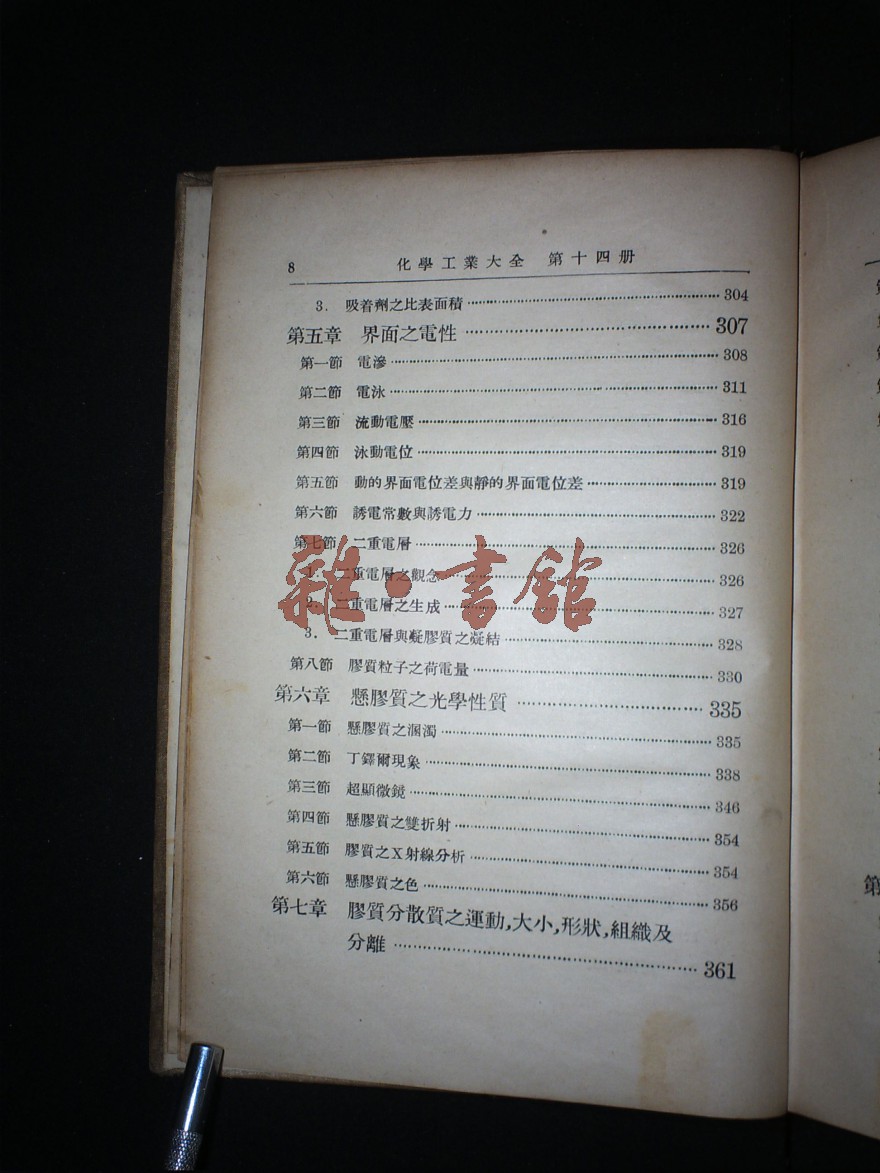 8 化學工業大全 第十四册
3. 吸着劑之比表面積 304
第五章 界面之電性 307
第一節 電滲 308
第二節 電泳 311
第三節 流動電壓 316
第四節 泳動電位 319
第五節 動的界面電位差與靜的界面電位差 319
第六節 誘電常數與誘電力 322
第七節 二重電層 326
1. 二重電層之觀念 326
2. 二重電層之生成 327
3. 二重電層與凝膠質之凝結 328
第八節 膠質粒子之荷電量 330
第六章 懸膠質之光學性質 335
第一節 懸膠質之溷濁 335
第二節 丁鐸爾現象 338
第三節 超顯微鏡 346
第四節 懸膠質之雙折射 354
第五節 膠質之X射線分析 354
第六節 懸膠質之色 356
第七章 膠質分散質之運動,大小,形狀,組織及
分離 361
雜·書館
第